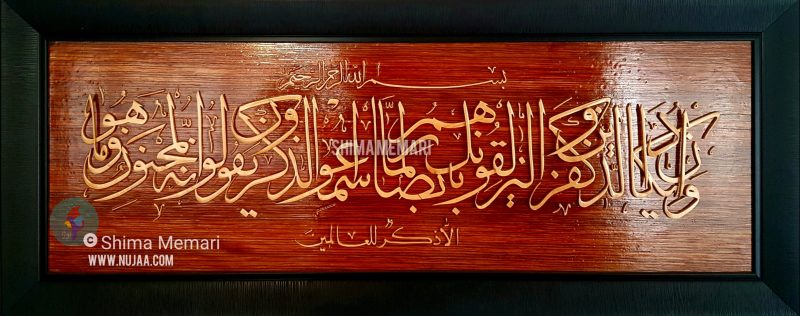 بسم الله الرحمن الرحیم
وإن یکاد الذین کفروا لیزلقونک بأبصارهم لما سمعوا الذکر ویقولون إنه لمجنون وما هو
إلا ذکر للعالمین
SHIMAMEMARI
© Shima Memari
WWW.NUJAA.COM